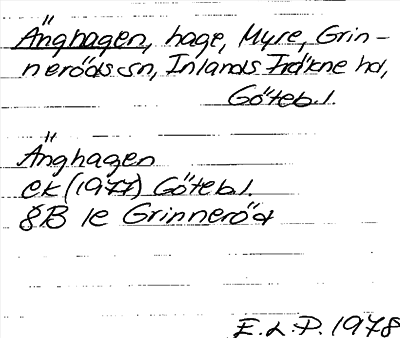 Änghagen, hage, Myre, Grin-
neröds sn, Inlands Fräkne hd,
Göteb.l.
Änghagen
ek (1977) Göteb.l.
8B 1e Grinneröd
E.L.P. 1978